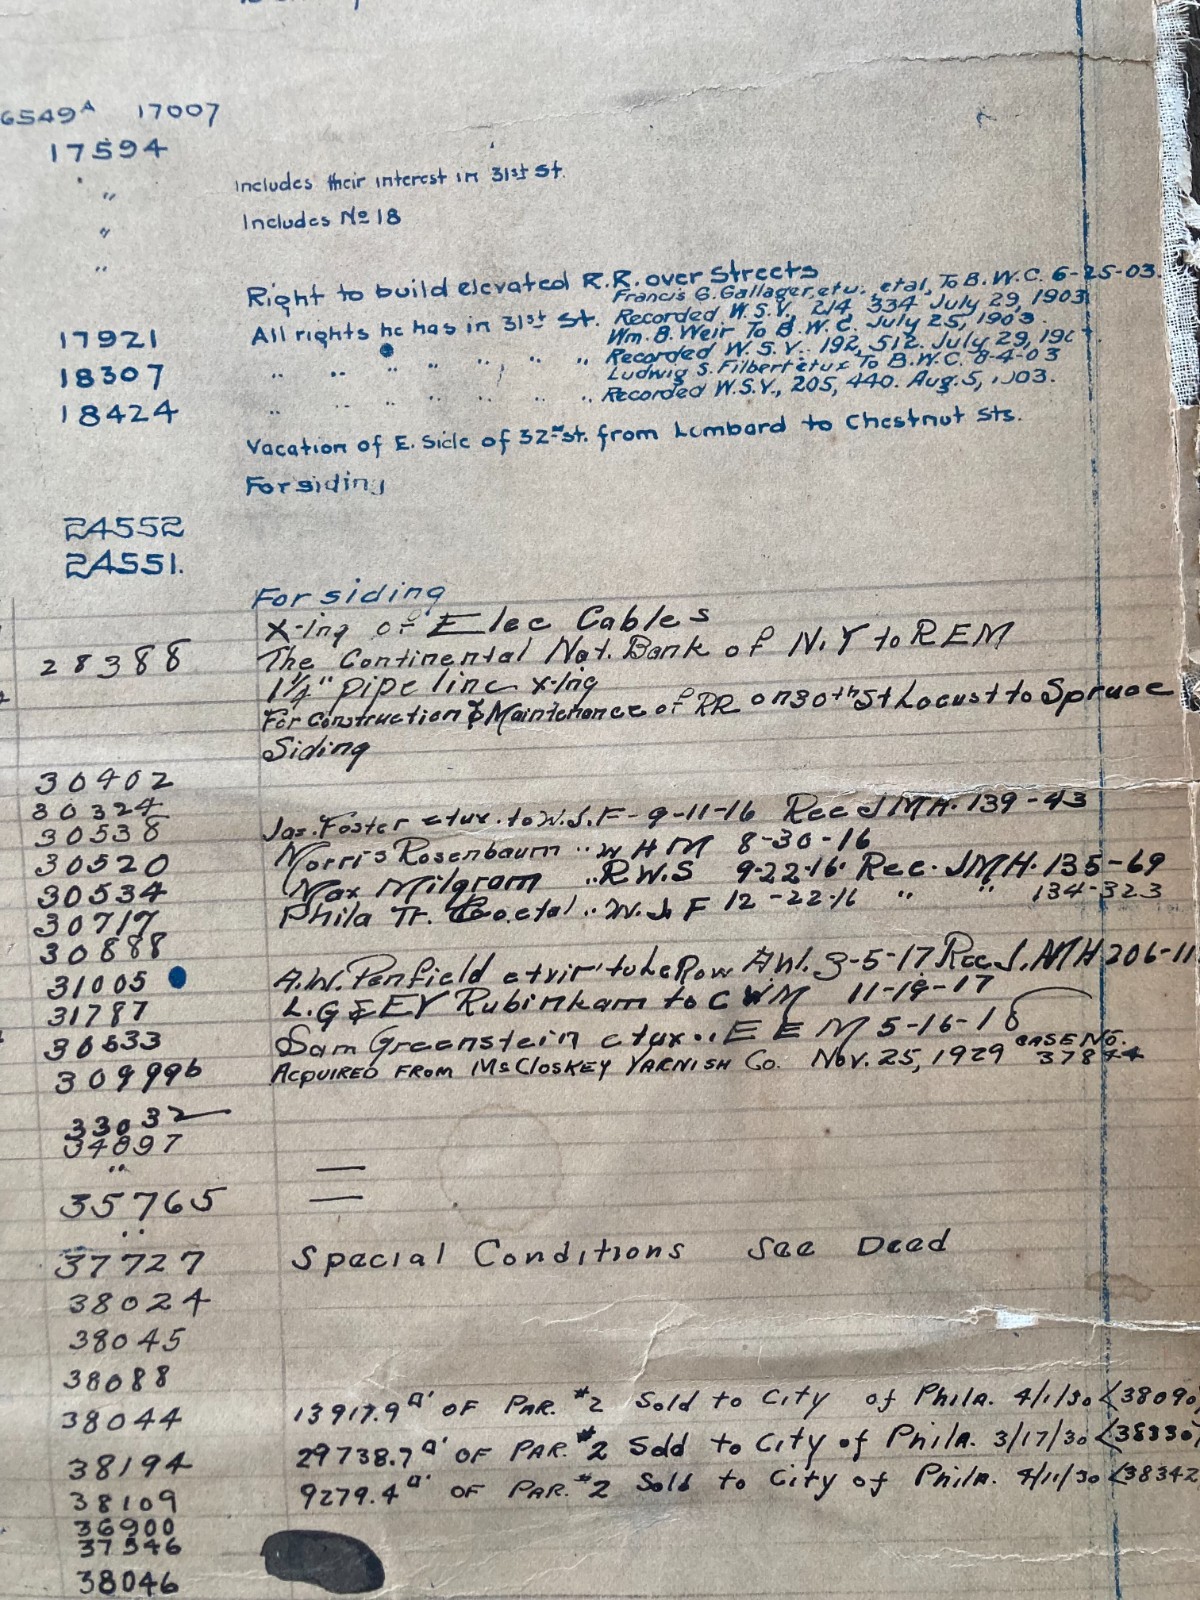 6549A 17007
17594
" Includes their interest in 31st St.
" Includes No 18
"
Right to build elevated R.R. over Streets
Francis G. Gallager, et u., etal, To B.W.C. 6-25-03.
17921 All rights he has in 31st St. Recorded W.S.V., 214, 334 July 29, 1903
Wm. B. Weir To B.W.C. July 25, 1903.
18307 " " " " " " " Recorded W.S.V. 192, 512. July 29, 190
Ludwig S. Filbert et ux To B.W.C. 8-4-03
18424 " " " " " " " Recorded W.S.V., 205, 440. Aug. 5, 1903.
Vacation of E. Side of 32nd St. from Lombard to Chestnut Sts.
For siding
24552
24551.
For siding
X-ing of Elec Cables
28388 The Continental Nat. Bank of N.Y to REM
1¼" pipe line x-ing
For Construction & Maintenance of RR on 30th St Locust to Spruce
Siding
30402
30324
30538 Jas. Foster etux. to W.J.F - 9-11-16 Rec JMH. 139-43
30520 Morris Rosenbaum " W H M 8-30-16
30534 Max Milgram " R.W.S 9-22-16 Rec. JMH. 135-69
30717 Phila Tr. Co. etal " W.J F 12-22-16 " " 134-323
30888
31005 A.W. Penfield etvir to LeRow 3-5-17 Rec J.MH 206-11
31787 L.G & EY Rubinkam to C W M 11-19-17
30633 Sam Greenstein etux " E E M 5-16-18
309996 ACQUIRED FROM McCLOSKEY VARNISH Co. NOV. 25, 1929 CASE NO. 37844
33032
34897
" —
35765 —
"
37727 Special Conditions See Deed
38024
38045
38088
38044 13917.9 □' OF PAR. #2 Sold to City of Phila. 4/1/30 <38090
38194 29738.7 □' OF PAR. #2 Sold to City of Phila. 3/17/30 <38330
38109 9279.4 □' OF PAR. #2 Sold to City of Phila. 4/11/30 <38342
36900
37546
38046